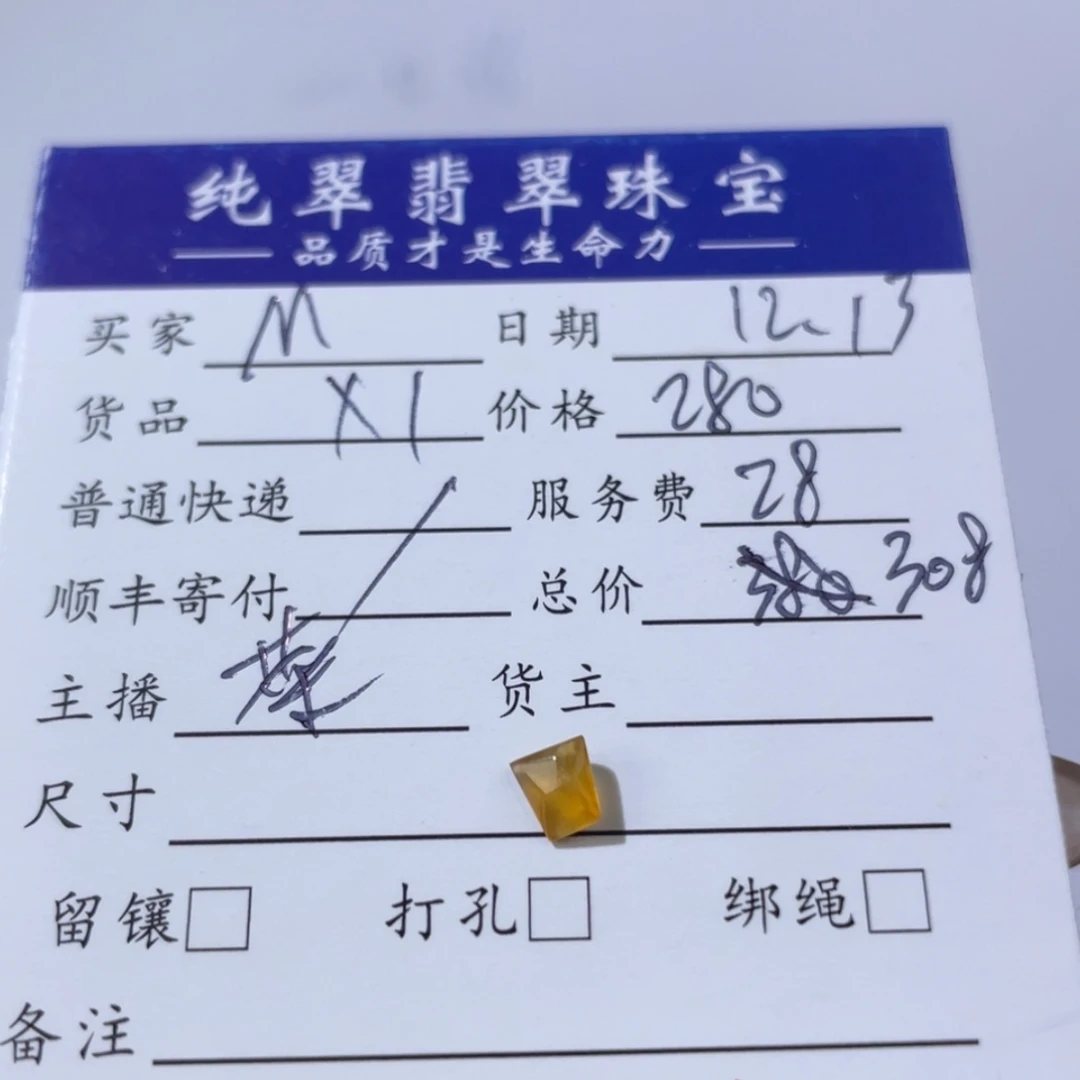 纯翠翡翠珠宝
品质才是生命力
买家 M 日期 12.13
货品 X1 价格 280
普通快递 服务费 28
顺丰寄付 总价 308
主播 货主
尺寸
留镶 打孔 绑绳
备注